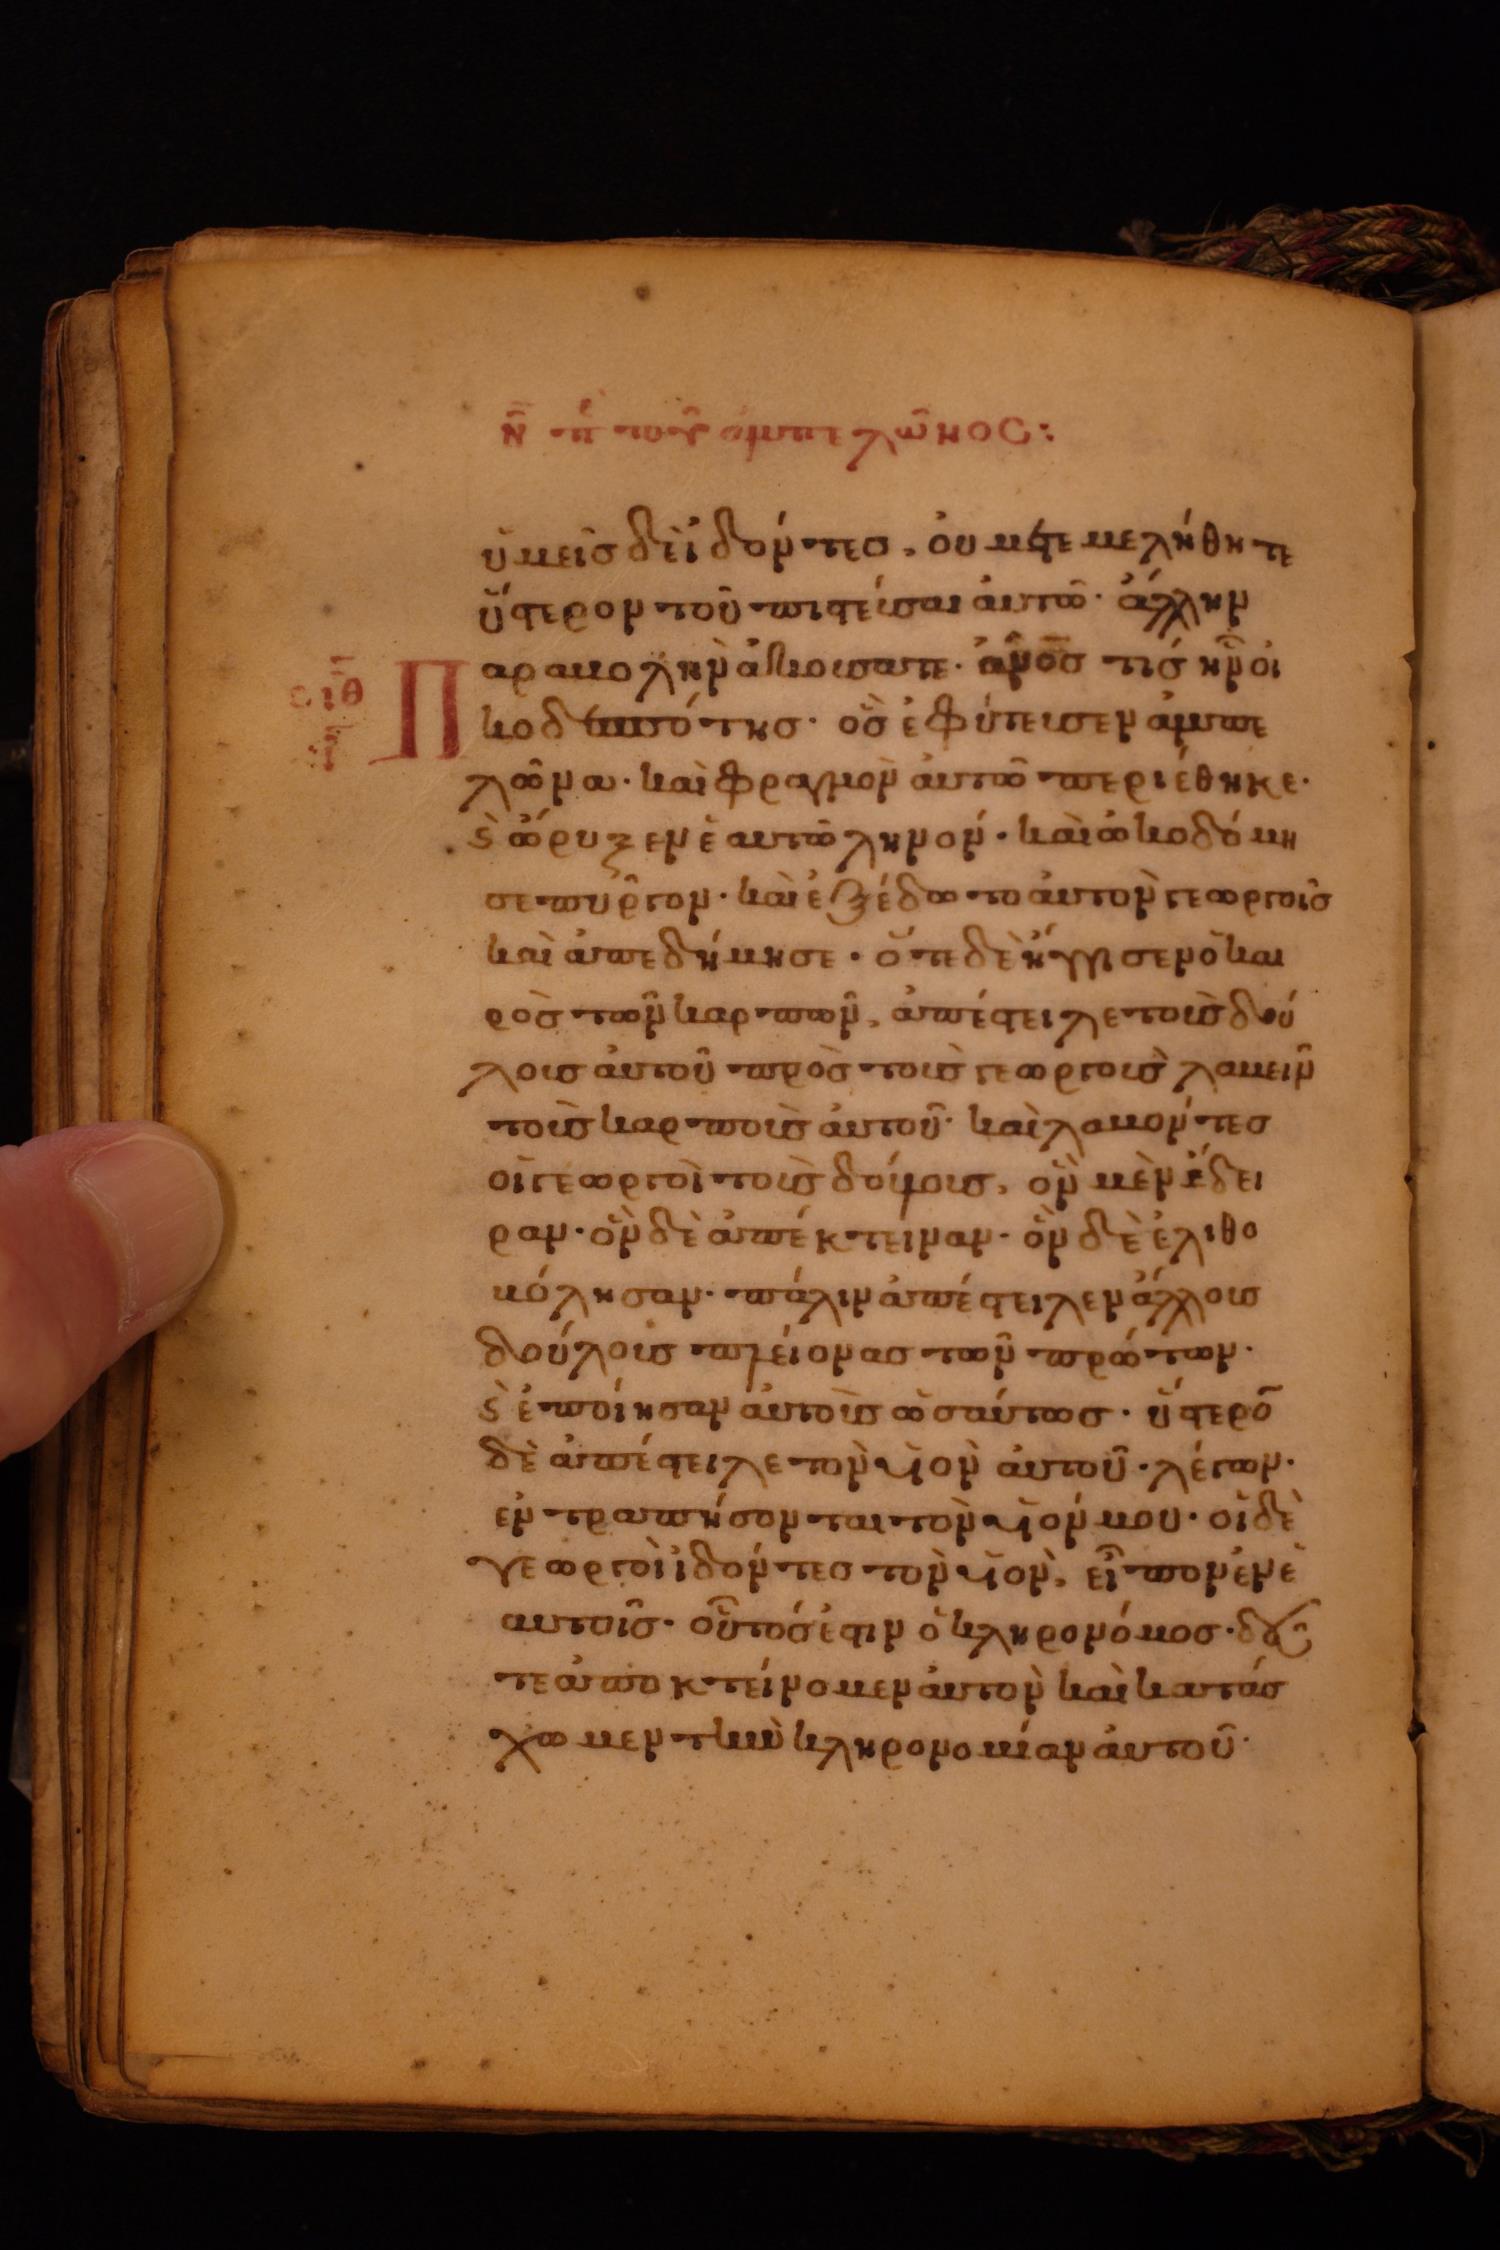 ν̄ πὲ τοῦ ἀμπελῶνος:
ὑμεῖς δὲ ἰδόντες, οὐ μετεμελήθητε
ὕστερον τοῦ πιστεῦσαι αὐτῶ· ἄλλην
Παραβολὴν ἀκούσατε· ἀν̄ο̄ς τίς ἦν οἰ
σιθ
κοδεσπότης· ὃς ἐφύτευσεν ἀμπε
λῶνα· καὶ φραγμὸν αὐτῶ περιέθηκε·
ϛ ὤρυξεν ἐν αὐτῶ ληνόν· καὶ ὠκοδόμη
σε πύργον· καὶ ἐξέδωτο αὐτὸν γεωργοῖς
καὶ ἀπεδήμησε· ὅτε δὲ ἤγγισεν ὁ και
ρὸς τῶν καρπῶν, ἀπέστειλε τοὺς δού
λους αὐτοῦ πρὸς τοὺς γεωργοὺς λαβεῖν
τοὺς καρποὺς αὐτοῦ· καὶ λαβόντες
οἱ γεωργοὶ τοὺς δούλους, ὃν μὲν ἔδει
ραν· ὃν δὲ ἀπέκτειναν· ὃν δὲ ἐλιθο
βόλησαν· πάλιν ἀπέστειλεν ἄλλους
δούλους πλείονας τῶν πρώτων·
ϛ ἐποίησαν αὐτοὺς ὡσαύτως· ὕστερο̄
δὲ ἀπέστειλε τὸν υἱὸν αὐτοῦ· λέγων·
ἐντραπήσονται τὸν υἱόν μου· οἱ δὲ
γεωργοὶ ἰδόντες τὸν υἱὸν, εἶπον ἐν ἑ
αυτοῖς· οὗτός ἐστιν ὁ κληρονόμος· δεῦ
τε ἀποκτείνομεν αὐτὸν καὶ κατάσ
χωμεν τὴν κληρονομίαν αὐτοῦ·